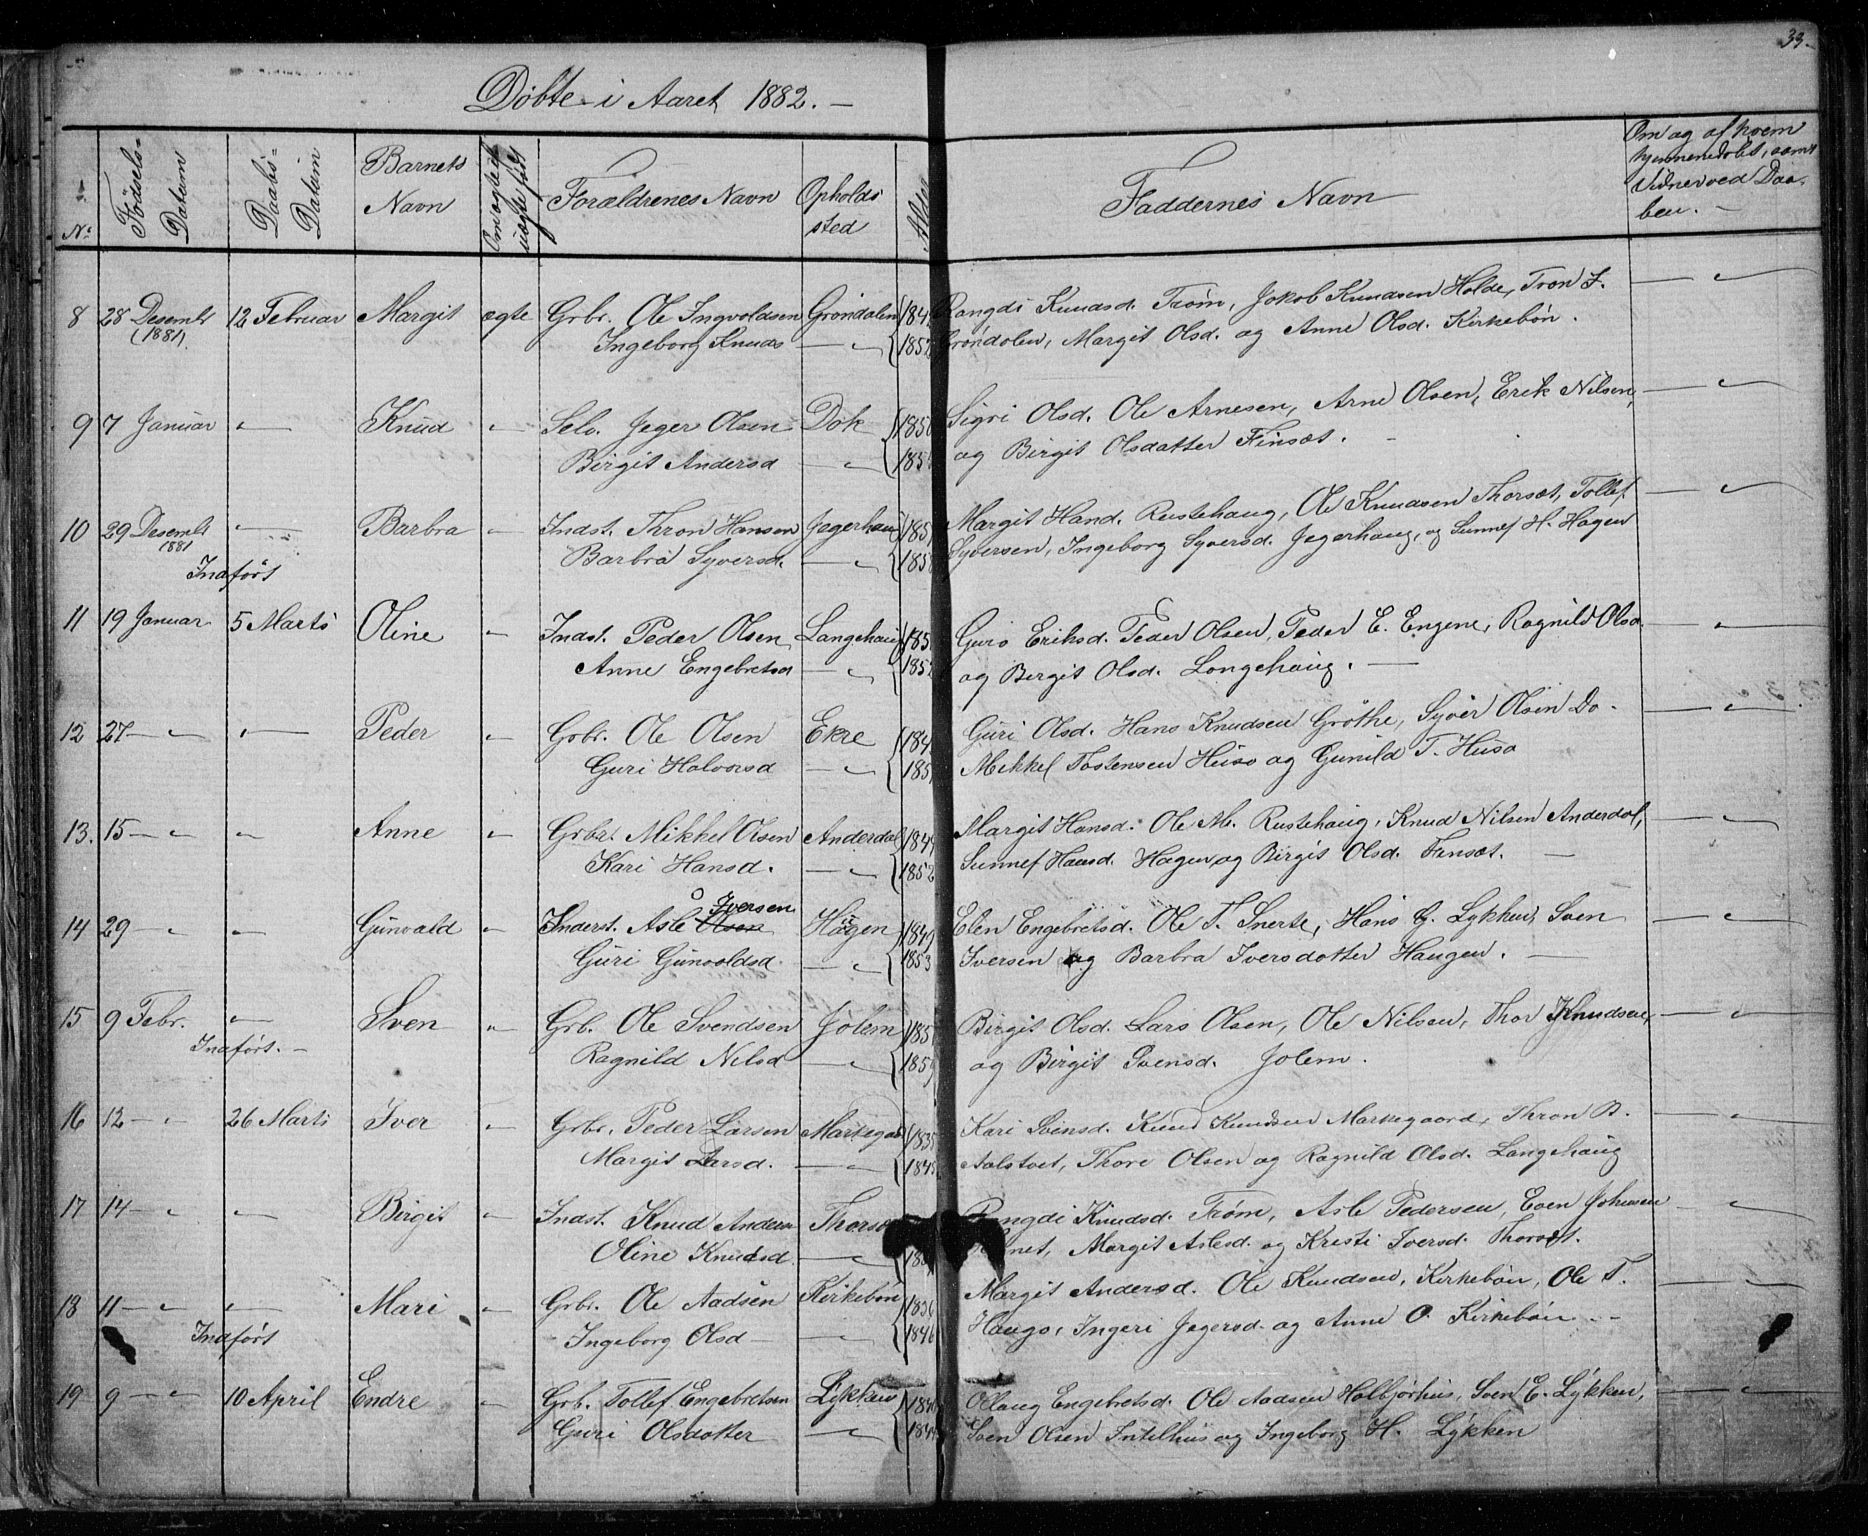 33.
Döbte i Aaret 1882. —
No
Fødsels-Datum
Daabs-Datum
Barnets Navn
Om ægte el. uægte født
Forældrenes Navn
Opholdssted
Alder
Faddernes Navn
Om og af hvem hjemmedøbt, samt Vidner ved Daaben. —
8 28 Desembr 12 Februar Margit ægte Grbr. Ole Ingvoldsen Gröndalen 184 Rangdi Knudsd. Tröm, Jakob Knudsen Holde, Tron I.
(1881) Ingeborg Knuds — 1852 Gröndalen, Margit Olsd. og Anne Olsd. Kirkebön.
9 7 Januar — Knud — Selv. Jeger Olsen Dok 1856 Sigri Olsd. Ole Arnesen, Arne Olsen, Erik Nilsen,
Birgit Andersd — 185 og Birgit Olsdatter Finsæt.
10 29 Desembr — Barbra — Indst. Thron Hansen Jegerhaug 185 Margit Hand. Rustehaug, Ole Knudsen Thorsæt, Tollef
1881 Barbra Syversd. — 185 Syversen, Ingeborg Syversd. Jegerhaug, og Sunnef H. Hagen
Indført
11 19 Januar 5 Marts Oline — Indst. Peder Olsen Langehaug 185 Guro Eriksd. Peder Olsen, Peder E. Engene, Ragnild Olsd.
Anne Engebretsd — 1852 og Birgit Olsd. Langehaug. —
12 27 — — Peder — Grbr. Ole Olsen Ekre 184 Guri Olsd. Hans Knudsen Gröthe, Syver Olsen Do -
Guri Halvorsd — 185 Mikkel Tostensen Huso og Gunild T. Huso
13. 15 — — Anne — Grbr. Mikkel Olsen Anderdal 1844 Margit Hansd. Ole M. Rustehaug, Knud Nilsen Anderdal,
Kari Hansd. — 1852 Sunnef Hansd. Hagen og Birgit Olsd. Finsæt. —
14 29 — — Gunvald — Inderst. Asle Olsen Iversen Hagen 1849 Elen Engebretsd. Ole T. Snerte, Hans G. Lykhus, Sven
Guri Gunvoldsd. — 1853 Iversen og Barbra Iversdatter Haugen. —
15 9 Febr. — Sven — Grb. Ole Svendsen Jolem 185 Birgit Olsd. Lars Olsen, Ole Nilsen, Thor Knudsen,
Indført. — Ragnild Nilsd — 1855 og Birgit Svensd. Jolem.
16 12 — 26 Marts Iver — Grbr. Peder Larsen Markegaa 1835 Kari Svensd. Knud Knudsen Markegaard, Thron B.
Margit Larsd. — 1845 Aalstvet, Thore Olsen og Ragnild Olsd. Langehaug
17 14 — — Birgit — Indst. Knud Anders Thorsæ Rangdi Knudsd. Tröm, Asle Pedersen, Even Johansen
Oline Knudsd. — 18 Margit Aslesd. og Kristi Iversd. Thorsæt.
18 11 — — Mari — Grbr. Ole Aadsen Kirkebön 1836 Margit Andersd. Ole Knudsen, Kirkebön, Ole T.
Indført Ingeborg Olsd — 1846 Haugo, Ingeri Jegersd. og Anne O. Kirkebön. —
19 9 — 10 April Endre — Grb. Tollef Engebretsen Lykkens 184 Ollaug Engebretsd. Ole Aadsen Halbjørhus, Sven E. Lykken,
Guri Olsdatter — 184 Sven Olsen Intelhus og Ingeborg H. Lykken